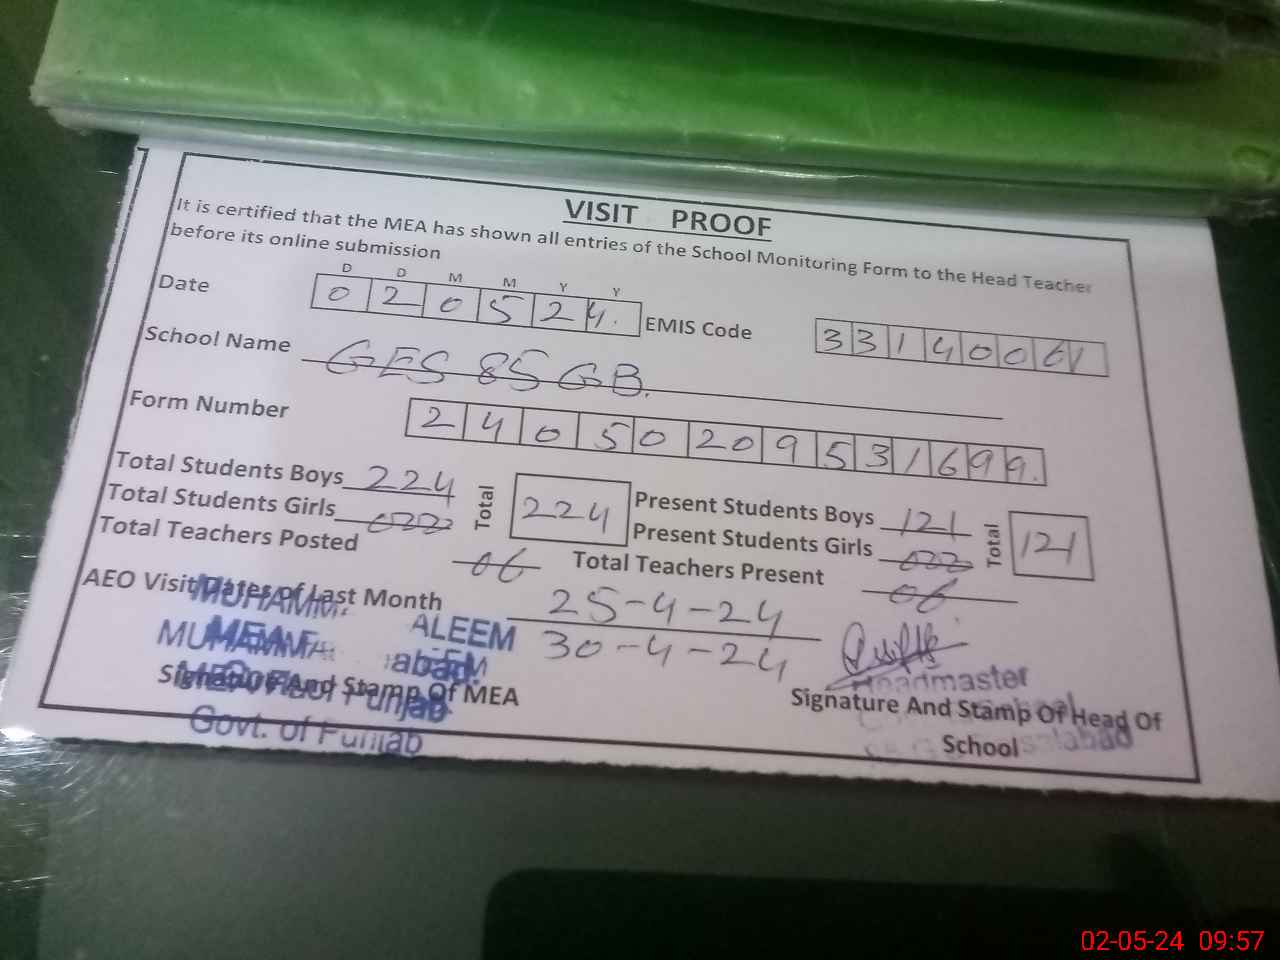 VISIT PROOF
It is certified that the MEA has shown all entries of the School Monitoring Form to the Head Teacher
before its online submission
D D M M Y Y
Date 0 2 0 5 2 4. EMIS Code 3 3 1 4 0 0 6 1
School Name GES 85 GB.
Form Number 2 4 0 5 0 2 0 9 5 3 1 6 9 9.
Total Students Boys 224 Total 224 Present Students Boys 121 Total 121
Total Students Girls 000 Present Students Girls 000
Total Teachers Posted 06 Total Teachers Present 06
AEO Visit Dates of Last Month 25-4-24
30-4-24
ALEEM
MEA
Signature And Stamp Of MEA
Govt. of Punjab
Headmaster
Signature And Stamp Of Head Of
School
02-05-24 09:57